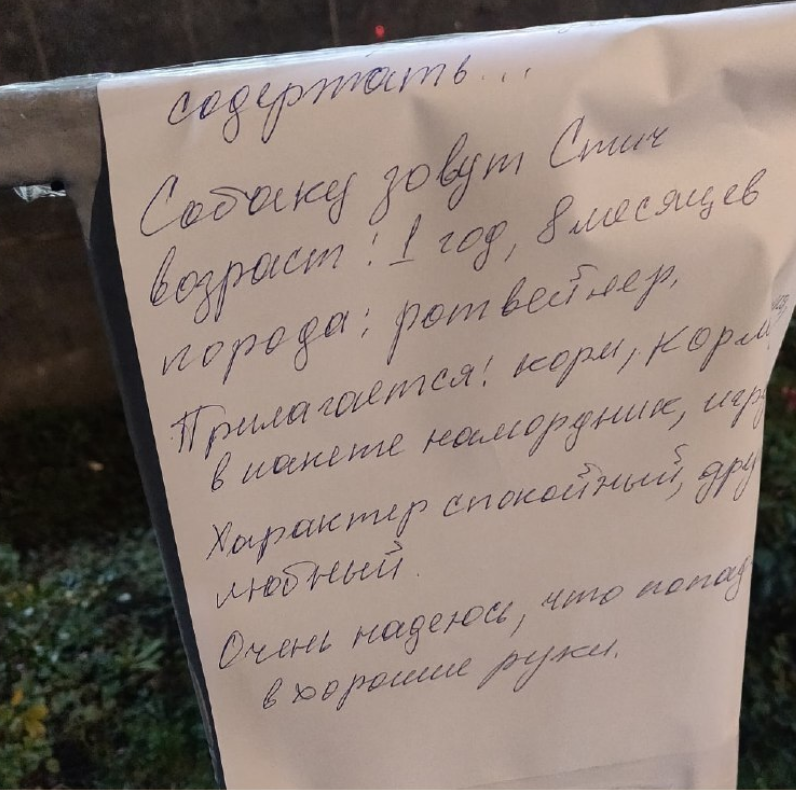 содержать...
Собаку зовут Стич
возраст: 1 год, 8 месяцев
порода: ротвейнер,
Прилагается: корм,
в пакете намордник,
Характер спокойный,
любный.
Очень надеюсь, что
в хорошие руки.